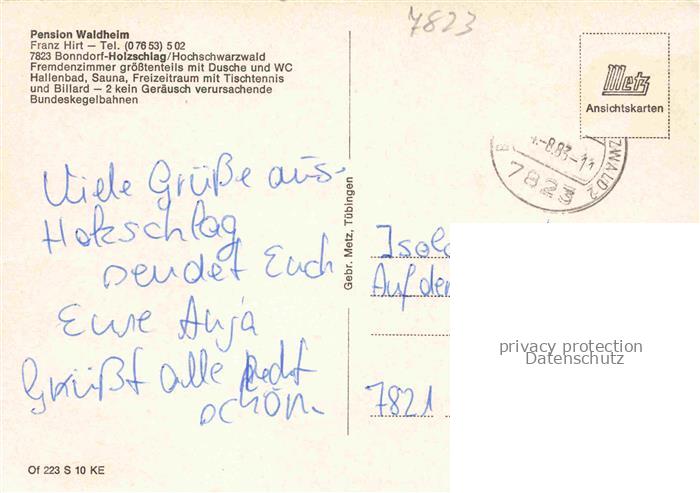 7823
Pension Waldheim
Franz Hirt — Tel. (0 76 53) 5 02
7823 Bonndorf-Holzschlag/Hochschwarzwald
Fremdenzimmer größtenteils mit Dusche und WC
Hallenbad, Sauna, Freizeitraum mit Tischtennis
und Billard — 2 kein Geräusch verursachende
Bundeskegelbahnen
Metz
Ansichtskarten
-8.83-11
ZWALD 2
7823
Viele Grüße aus
Holzschlag
sendet Euch
Eure Anja
Grüßt alle recht
schön.
Gebr. Metz, Tübingen
Isol
Auf der
7821
privacy protection
Datenschutz
Of 223 S 10 KE